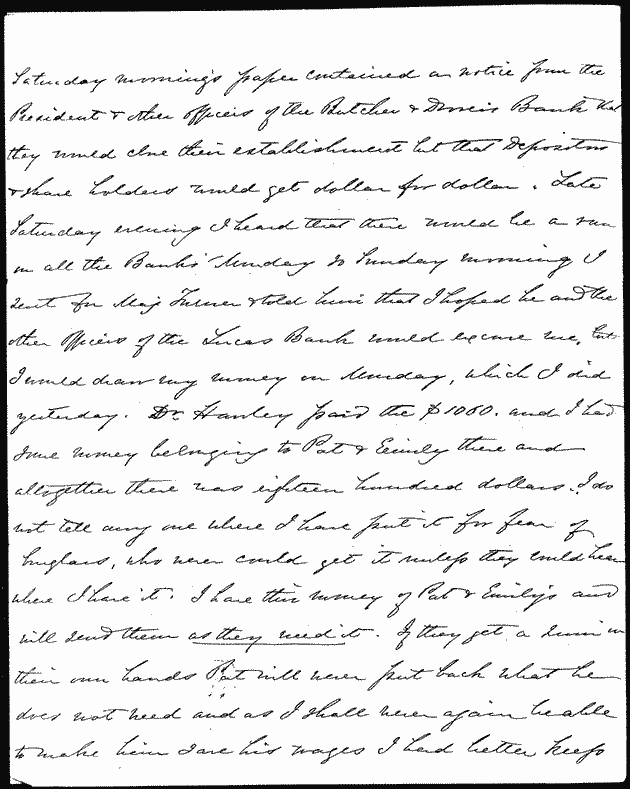 Saturday morning's paper contained a notice from the
President & other officers of the Butcher & Drovers Bank that
they would close their establishment but that Depositors
& share holders would get dollar for dollar. Late
Saturday evening I heard that there would be a run
on all the Banks Monday so Sunday morning I
sent for Maj Turner & told him that I hoped he and the
other officers of the Lucas Bank would excuse me, but
I would draw my money on Monday, which I did
yesterday. Dr. Hanley paid the $1060. and I had
some money belonging to Pat & Emily there and
altogether there was eighteen hundred dollars. I do
not tell any one where I have put it for fear of
burglars, who never could get it unless they could hear
where I have it. I have this money of Pat & Emily's and
will send them as they need it. If they get a sum in
their own hands Pat will never put back what he
does not need and as I shall never again be able
to make him save his wages I had better keep